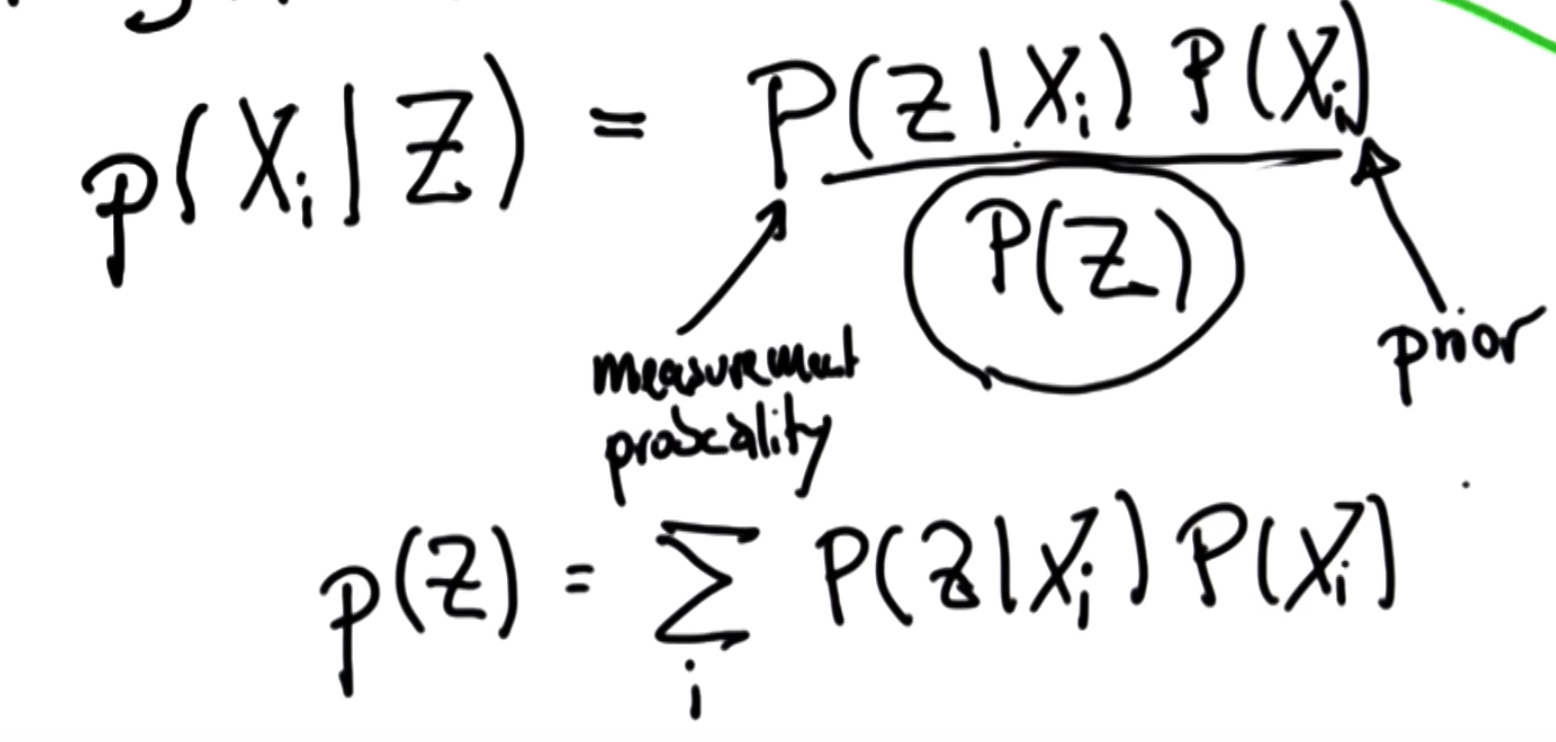 p(Xi|Z) = P(Z|Xi) P(Xi)
P(Z)
measurement
probability
prior
p(Z) = Σ P(Z|Xi) P(Xi)
i